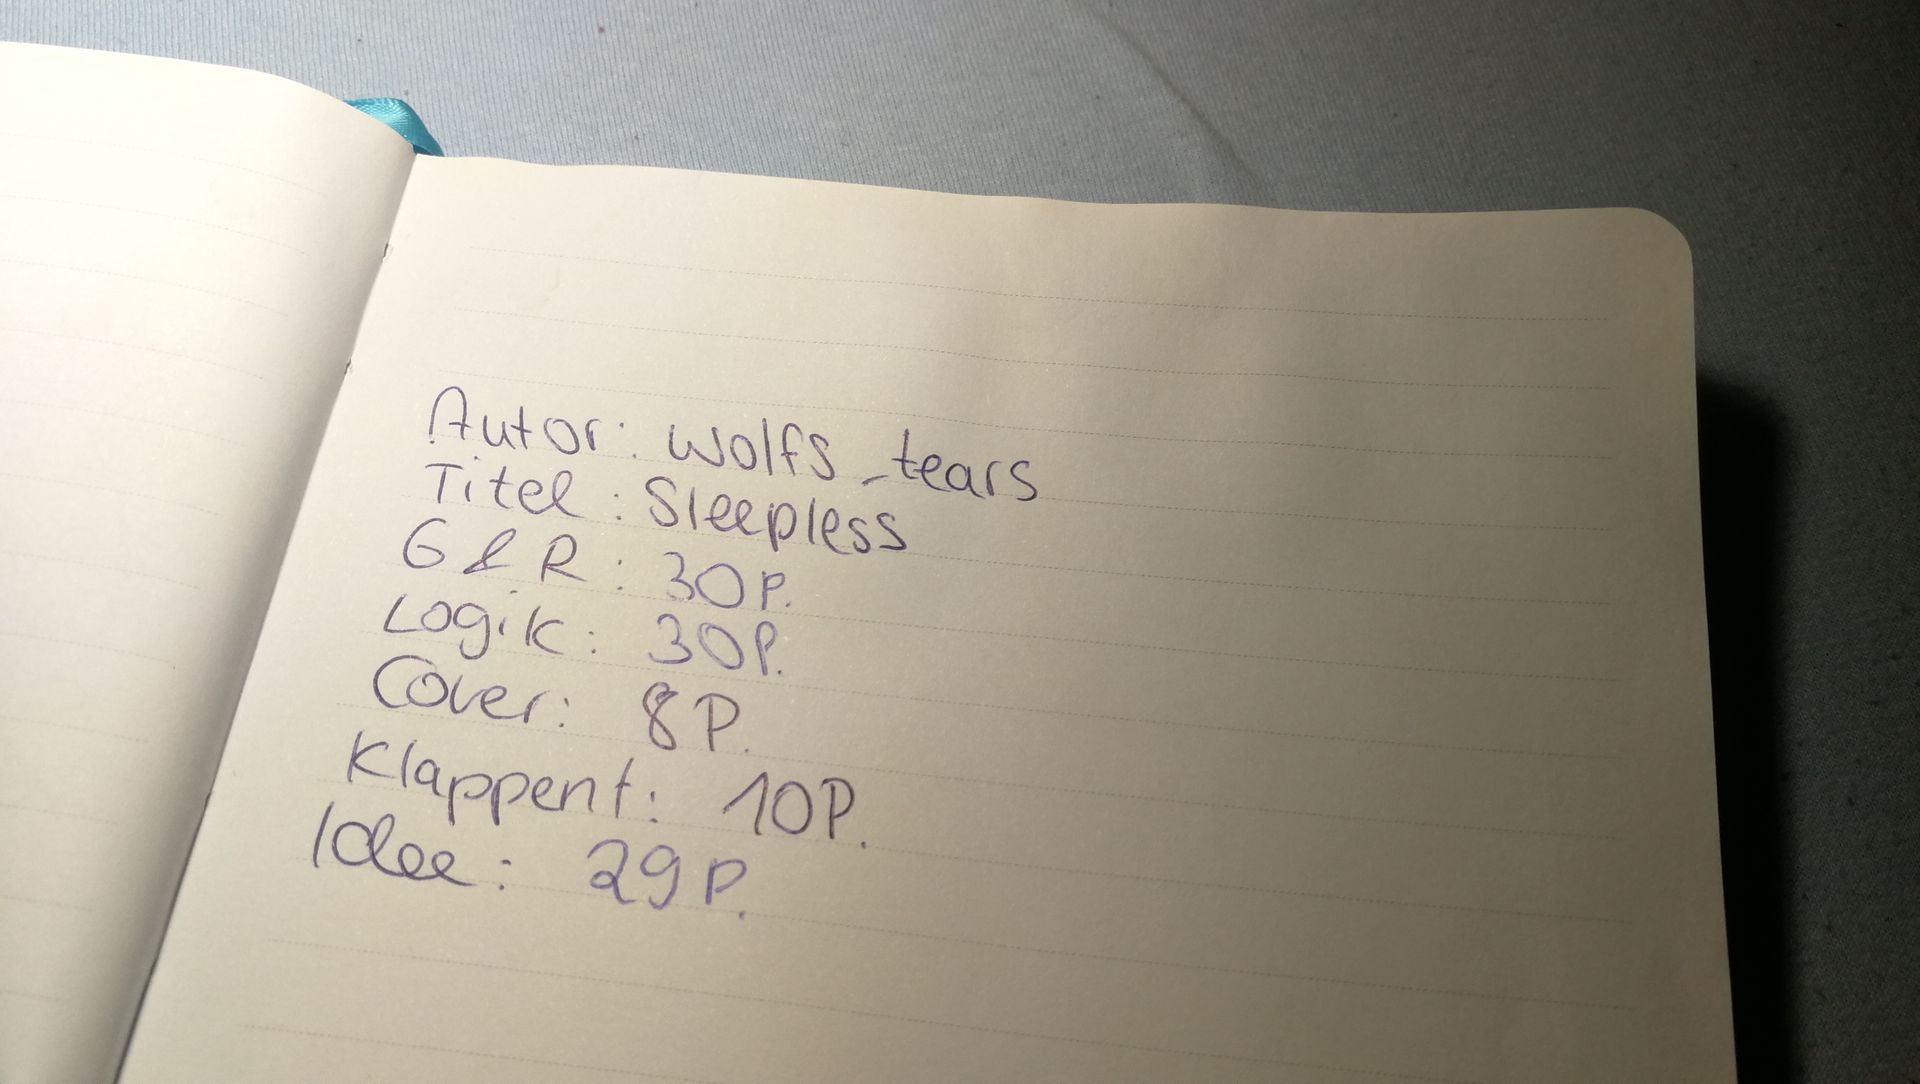 Autor: wolfs_tears
Titel: Sleepless
G & R: 30P.
Logik: 30P.
Cover: 8P.
Klappent: 10P.
Idee: 29P.